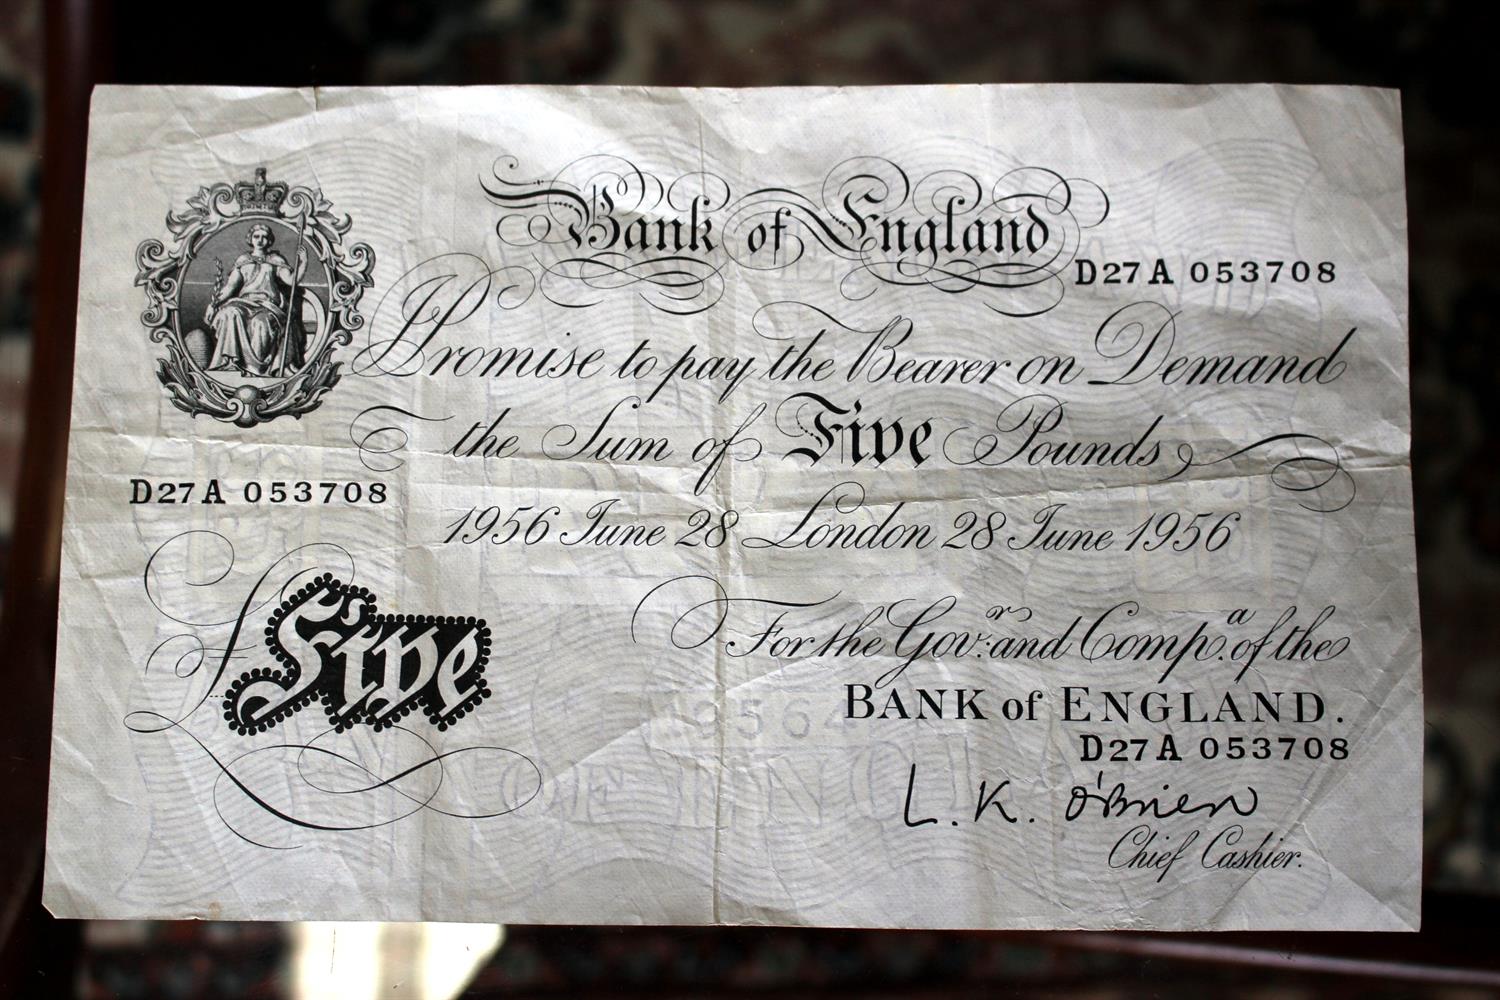 Bank of England
D27A 053708
I Promise to pay the Bearer on Demand
the Sum of Five Pounds
D27A 053708
1956 June 28 London 28 June 1956
Five
For the Govr: and Compa. of the
BANK of ENGLAND.
D27A 053708
L. K. O'Brien
Chief Cashier.